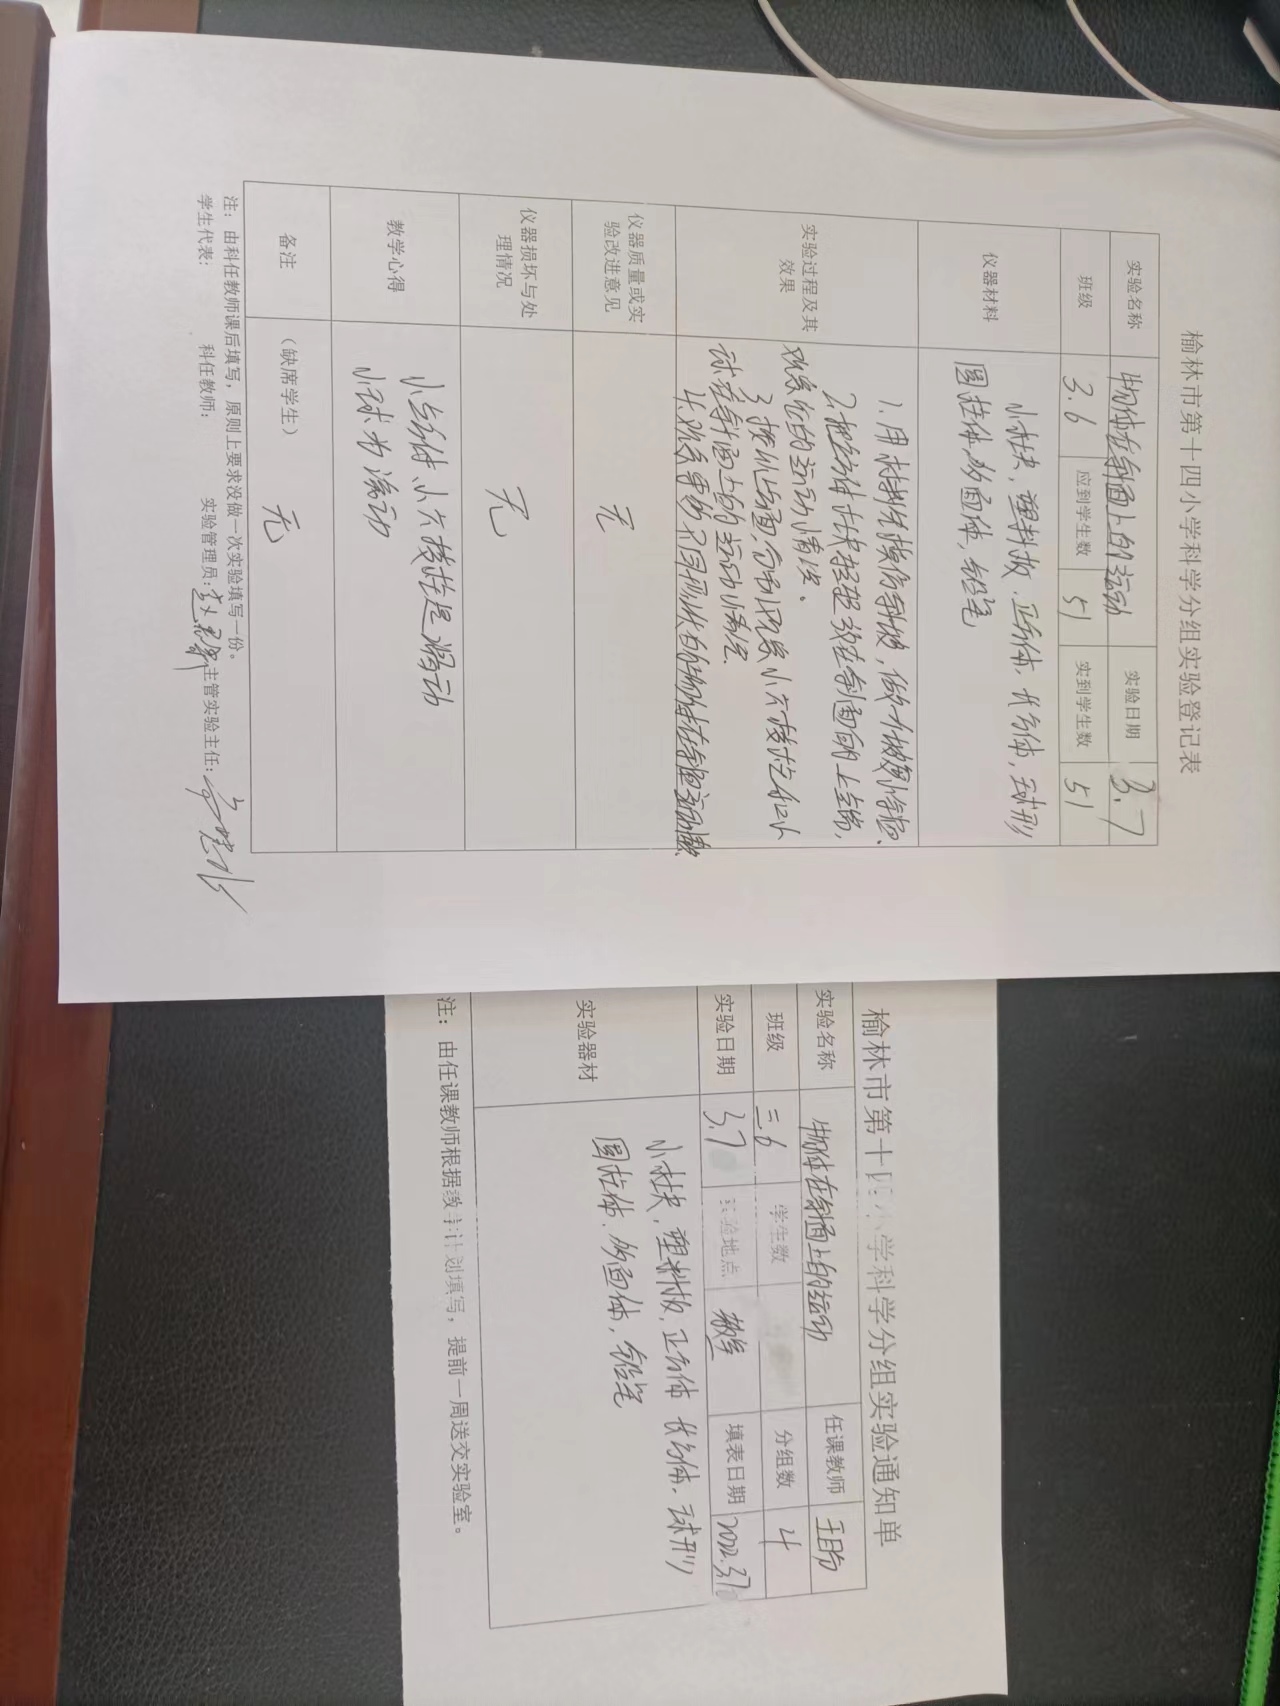 榆林市第十四小学科学分组实验登记表
实验名称 物体在斜面上的运动 实验日期 3.7
班级 3.6 应到学生数 51 实到学生数 51
仪器材料 小木块,塑料板.正方体,长方体,球形
圆柱体,多面体,铅笔
实验过程及其
效果
1.用材料先搭斜坡,做一个
2.把方体木块轻轻放在斜面的上端,
观察它的运动情况。
3.换個上面,分别观察小六棱柱和小
球在斜面上的运动情况.
4.观察更多不同形状的物体在斜面
仪器质量或实
验改进意见
无
仪器损坏与处
理情况
无
教学心得 小方体、小六棱柱是滑动
小球为滚动
备注 (缺席学生) 无
注：由科任教师课后填写，原则上要求没做一次实验填写一份。
学生代表： 科任教师： 实验管理员： 主管实验主任：
榆林市第十四小学科学分组实验通知单
实验名称 物体在斜面上的运动 任课教师
班级 三.6 学生数 分组数 4
实验日期 3.7 实验地点 教室 填表日期 2022.3.7
实验器材 小木块,塑料板,正方体 长方体.球形
圆柱体.多面体,铅笔
注：由任课教师根据教学计划填写，提前一周送交实验室。